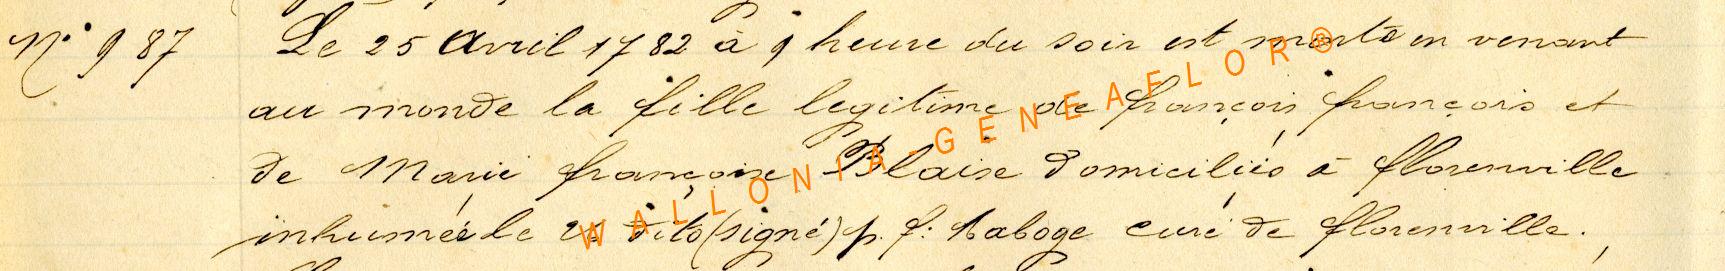 N° 987 Le 25 Avril 1782 à 9 heure du soir est morte en venant
au monde la fille legitime de françois françois et
de Marie françoise Blaise domiciliés à florenville
inhumée le dito (signé) p. f. Maboge curé de florenville.
WALLONIA-GENEAFLOR®